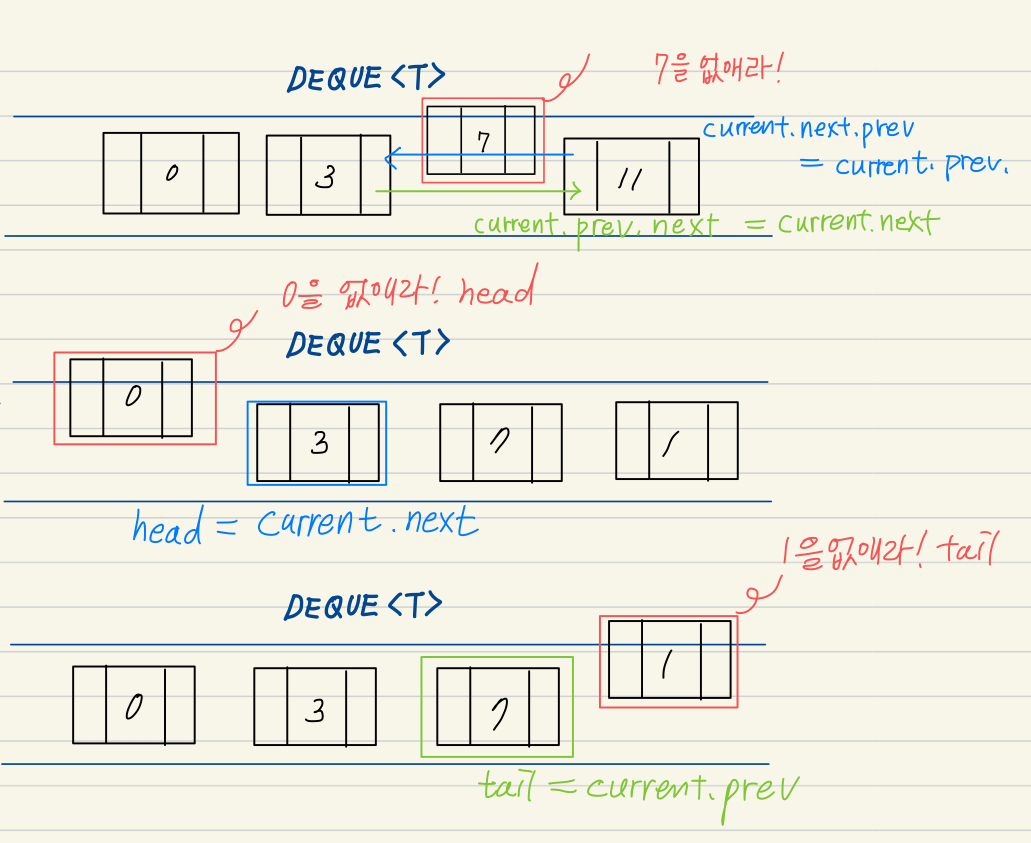 DEQUE <T>
7을 없애라!
0
3
7
11
current.next.prev
= current.prev.
current.prev.next = current.next
0을 없애라! head
DEQUE <T>
0
3
7
1
head = current.next
1을 없애라! tail
DEQUE <T>
0
3
7
1
tail = current.prev